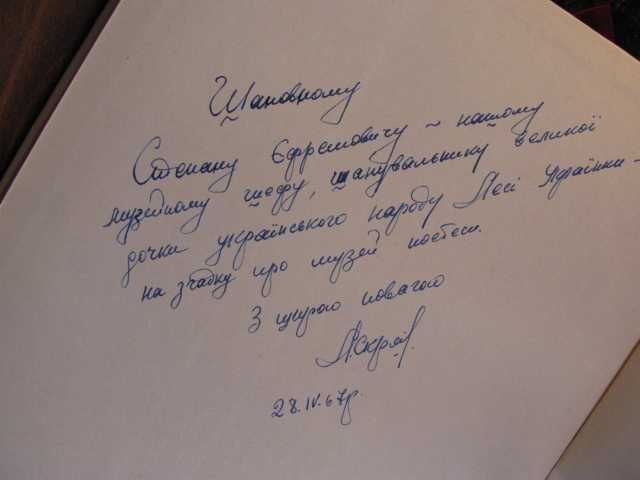 Шановному
Степану Єфремовичу – нашому
музейному шефу, шанувальнику великої
дочки українського народу Лесі Українки –
на згадку про музей поетеси.
З щирою повагою
28.IV.67р.